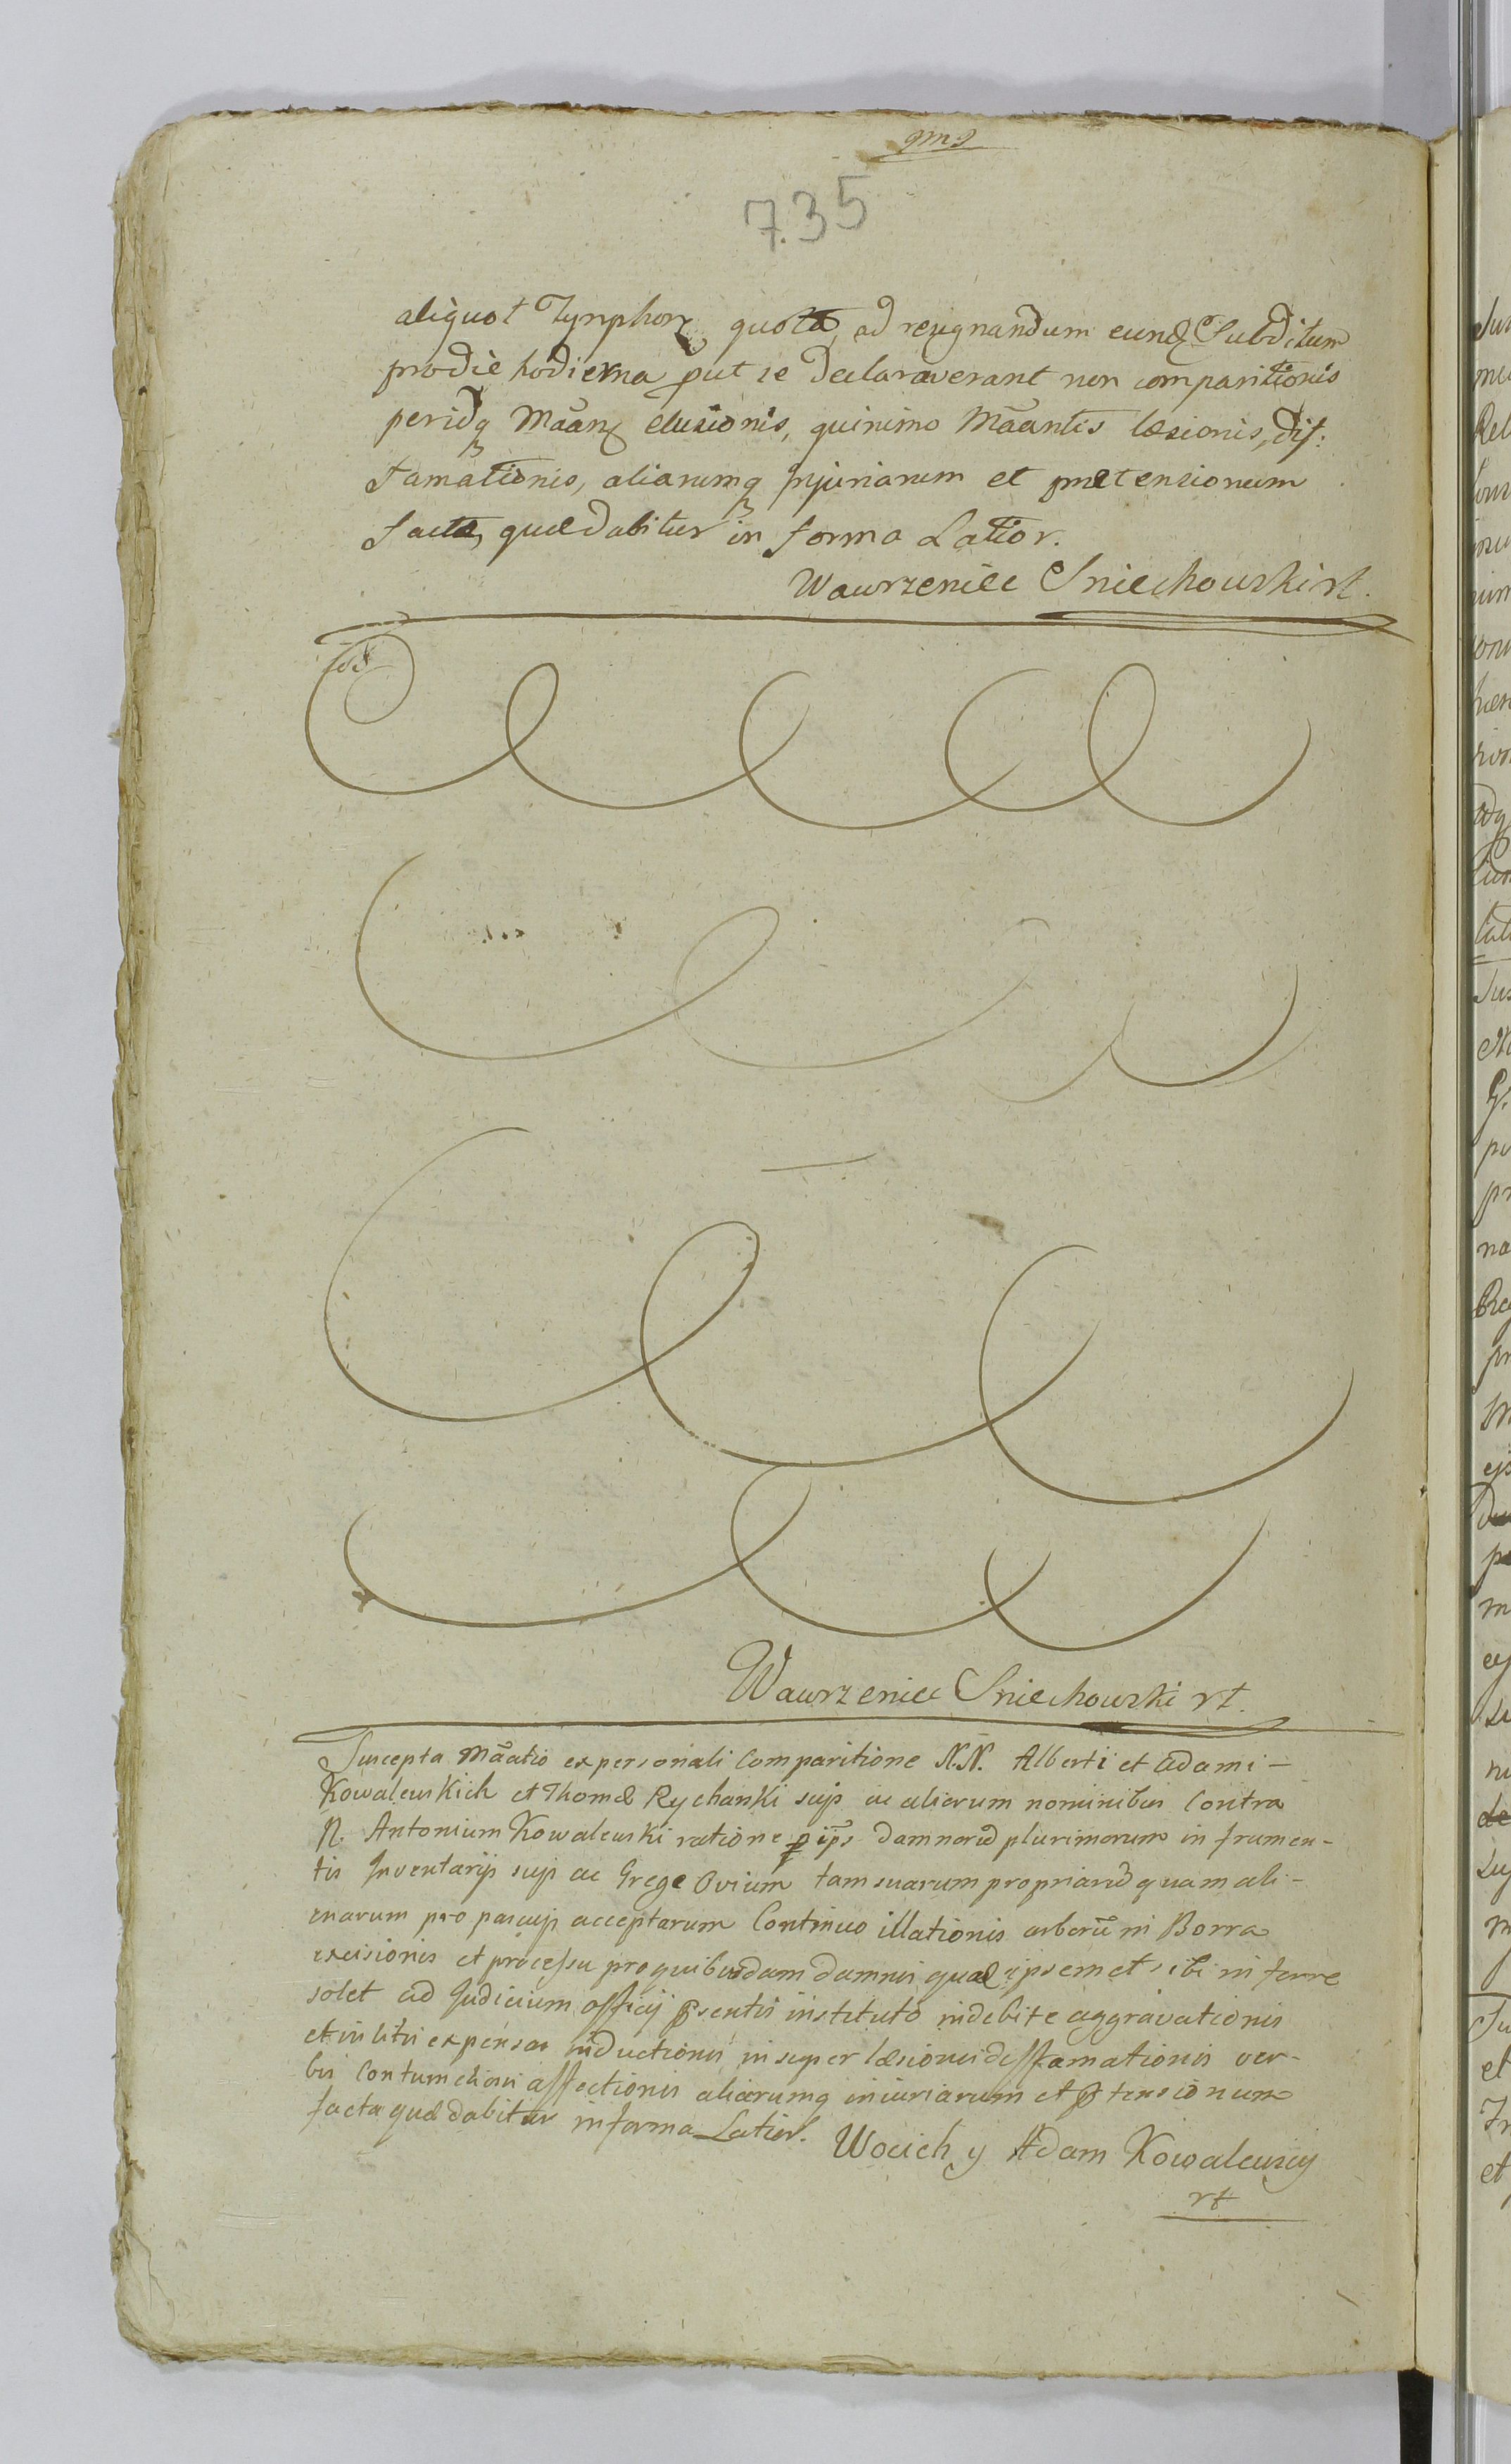 735
aliquot Tynphor quota, ad resignandum eund Subditum
prodie hodierna put se declaraverant non comparitionis
peridq Mãan elusionis, quinimo Mãantis læsionis, dif:
famationis, aliarumq injuriarum et prætensionum
facta, quæ dabitur in forma Latior.
Wawrzeniec Sniechowski rt.
Wawrzeniec Sniechowski rt.
Suscepta Mãatio ex personali Comparitione N.N. Alberti et Adami –
Kowalewskich et Thomæ Rychanski suis ac aliorum nominibus Contra
N. Antonium Kowalewski ratione p ips damnorũ plurimorum in frumen-
tis Inventarijs suis ac Grege Ovium tam suarum propriarũ quam ali-
enarum pro pascuis acceptarum Continuo illationis arborũ in Borra
excisionis et processu pro quibusdam damnis quæ ipsemet sibi inferre
solet ad Judicium officij psentis instituto indebite aggravationis
et in litis expensas inductionis insuper læsionis diffamationis ver-
bis Contumeliosis affectionis aliarumq iniuriarum et ptensionum
facta quæ dabitur in forma Latior. Wocich y Adam Kowalewscy
rt